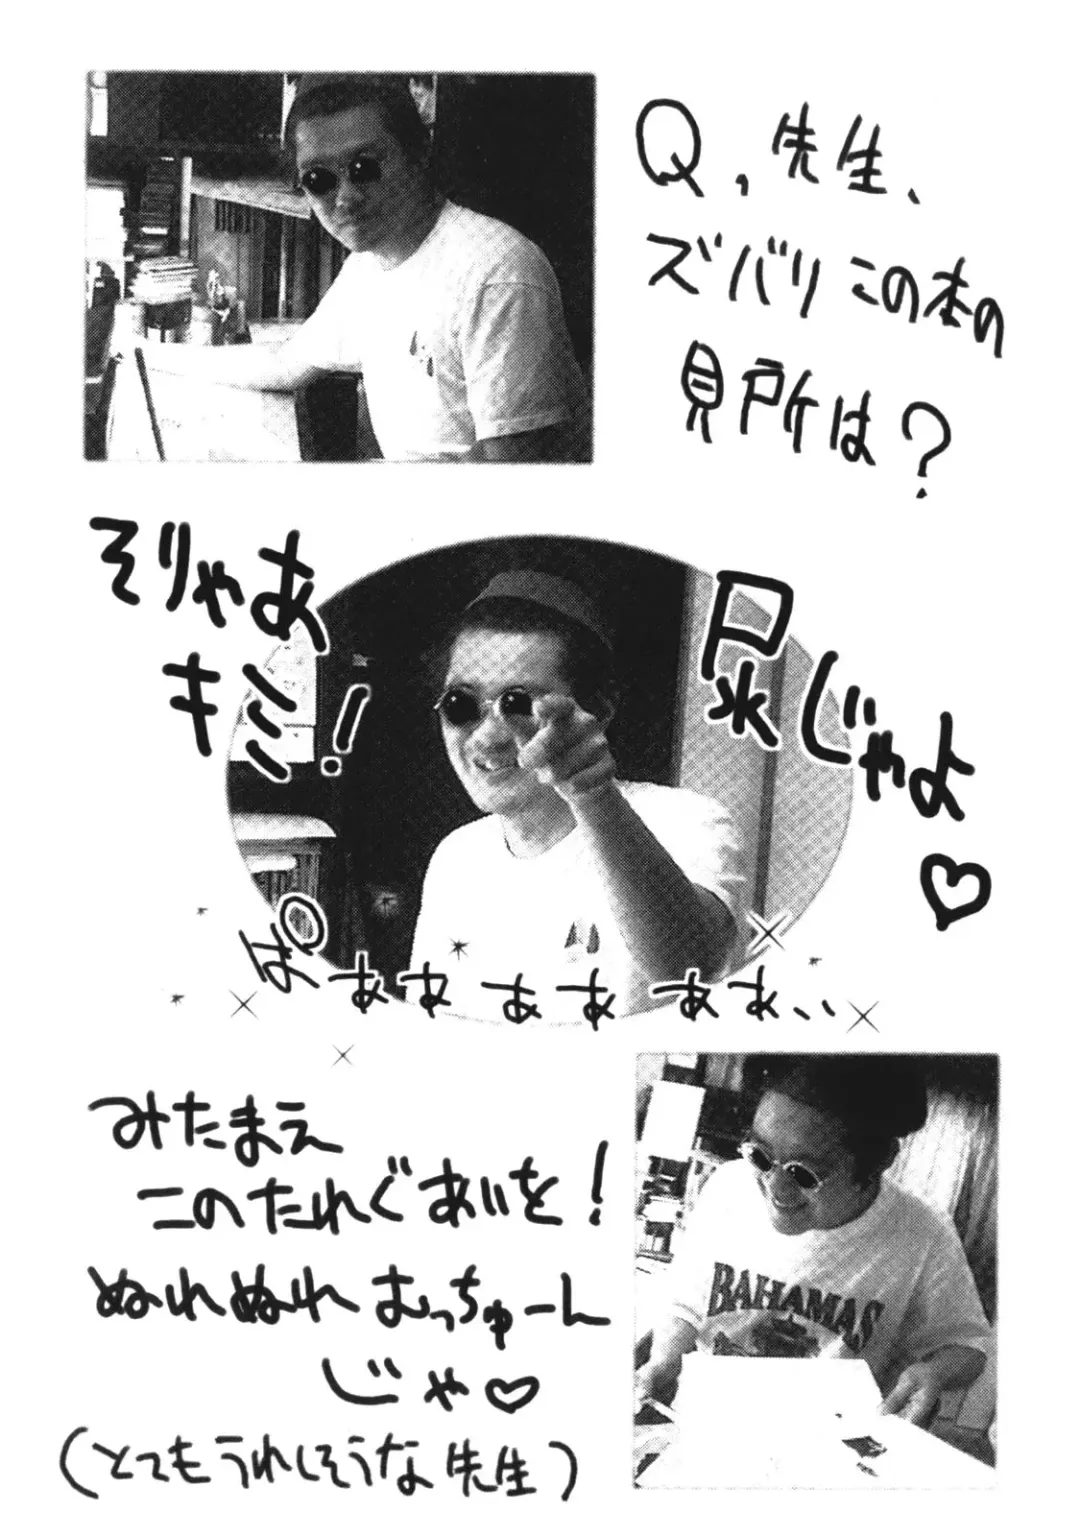 Q、先生、
ズバリこの本の
見所は？
そりゃあ
キミ！
尿じゃよ♡
ぱぁぁぁぁぁぁ、、
みたまえ
このたれぐあいを！
ぬれぬれむっちゅーん
じゃ♡
BAHAMAS
(とてもうれしそうな先生)